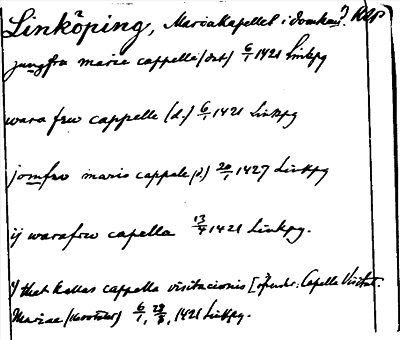 Linköping, Mariakapellet i domkan?. RAP
jungfru marie cappelle (dat) 6/1 1421 Linkpg
wara frw cappelle (d.) 6/1 1421 Linkpg
jomfrv maris cappele (d) 20/1 1427 Linkpg
ij warafrw capella 13/4 1421 Linkpg.
I that kallas cappella visitacionis [ofvanskr: Capella Visitat.
Mariae 6/1, 29/8, 1421 Linkpg.